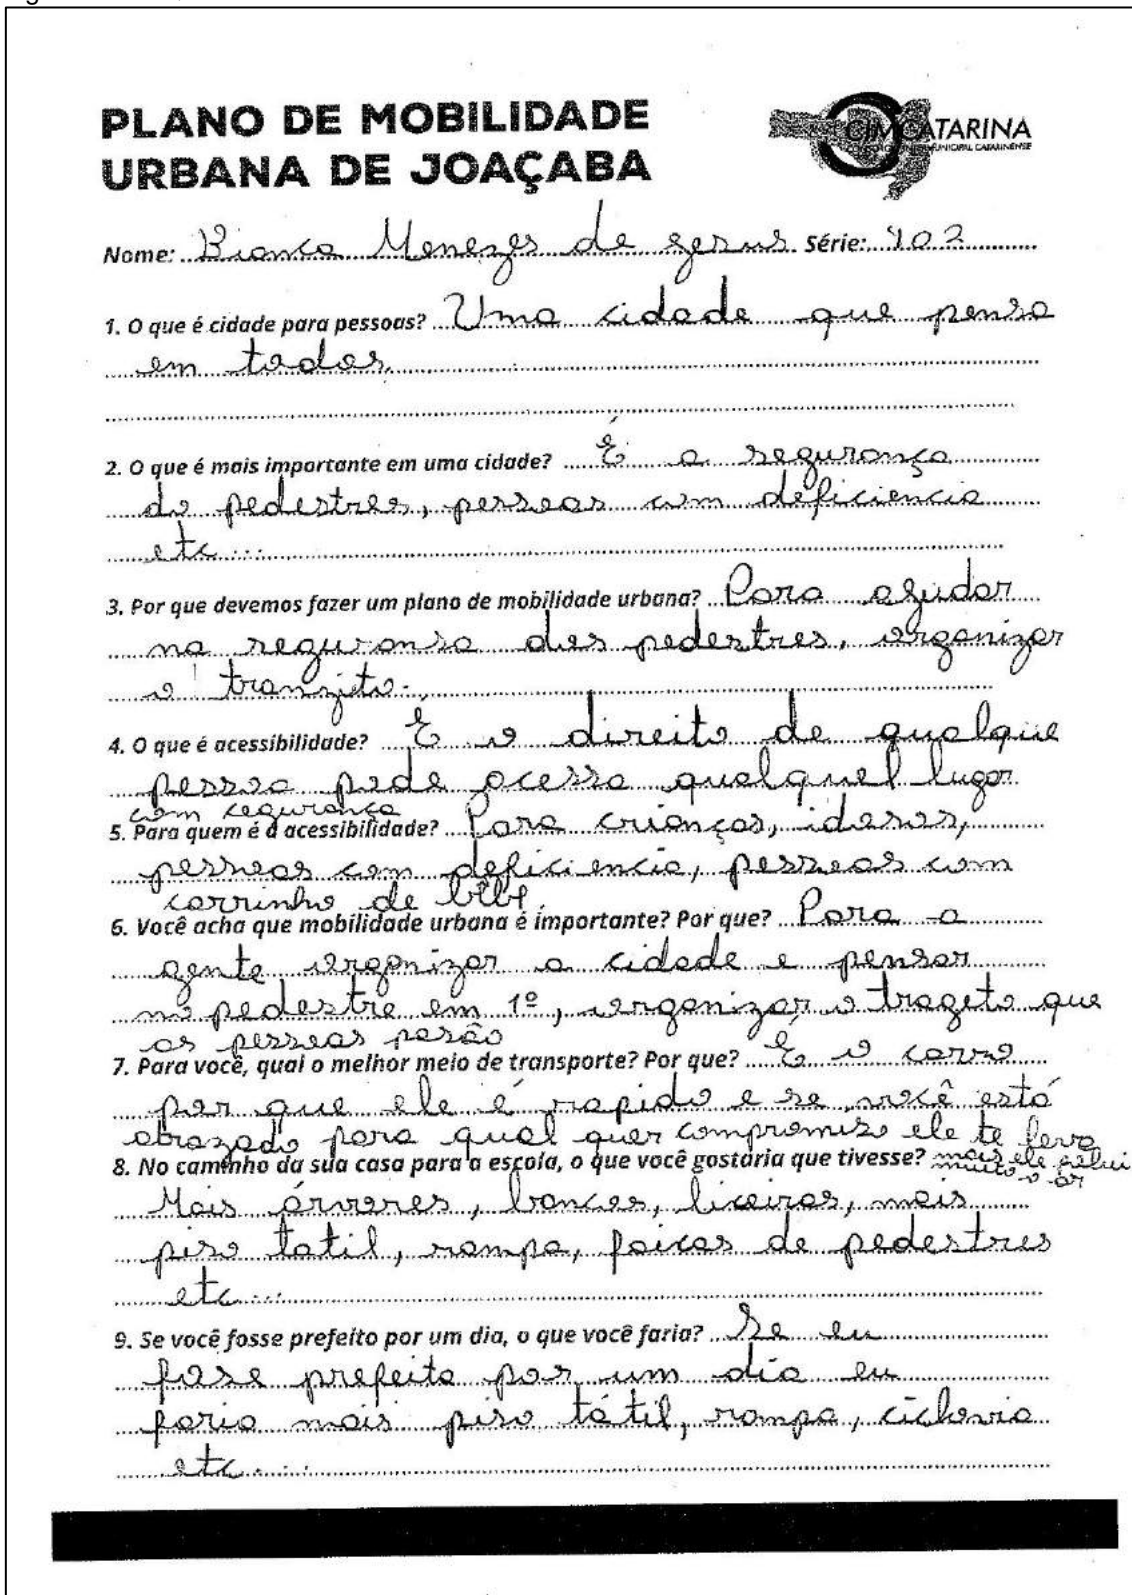 PLANO DE MOBILIDADE
URBANA DE JOAÇABA
CIMCATARINA
Nome: Bianca Menezes de gesus Série: 402
1. O que é cidade para pessoas? Uma cidade que pensa
em todos
2. O que é mais importante em uma cidade? É a segurança
do pedestres, pessoas com deficiencia
etc...
3. Por que devemos fazer um plano de mobilidade urbana? Para agudar
na seguransa dos pedestres, organizar
o tranzito.
4. O que é acessibilidade? É o direito de qualque
pessoa pode acessa qualquel lugar
com segurança
5. Para quem é a acessibilidade? Para crianças, idosos,
pessoas com deficiencia, pessoas com
carrinho de bebe.
6. Você acha que mobilidade urbana é importante? Por que? Para a
gente organizar a cidade e pensar
no pedestre em 1º, organizar o trageto que
as pessoas pasão
7. Para você, qual o melhor meio de transporte? Por que? É o carro
por que ele é rapido e se você está
atrazado para qual quer compromiso ele te leva
mais ele polui
muito o ar
8. No caminho da sua casa para a escola, o que você gostaria que tivesse?
Mais árvores, bancos, lixeiras, mais
piso tatil, rampa, faixas de pedestres
etc...
9. Se você fosse prefeito por um dia, o que você faria? Se eu
fose prefeito por um dia eu
faria mais piso tátil, rampa, ciclovia
etc...